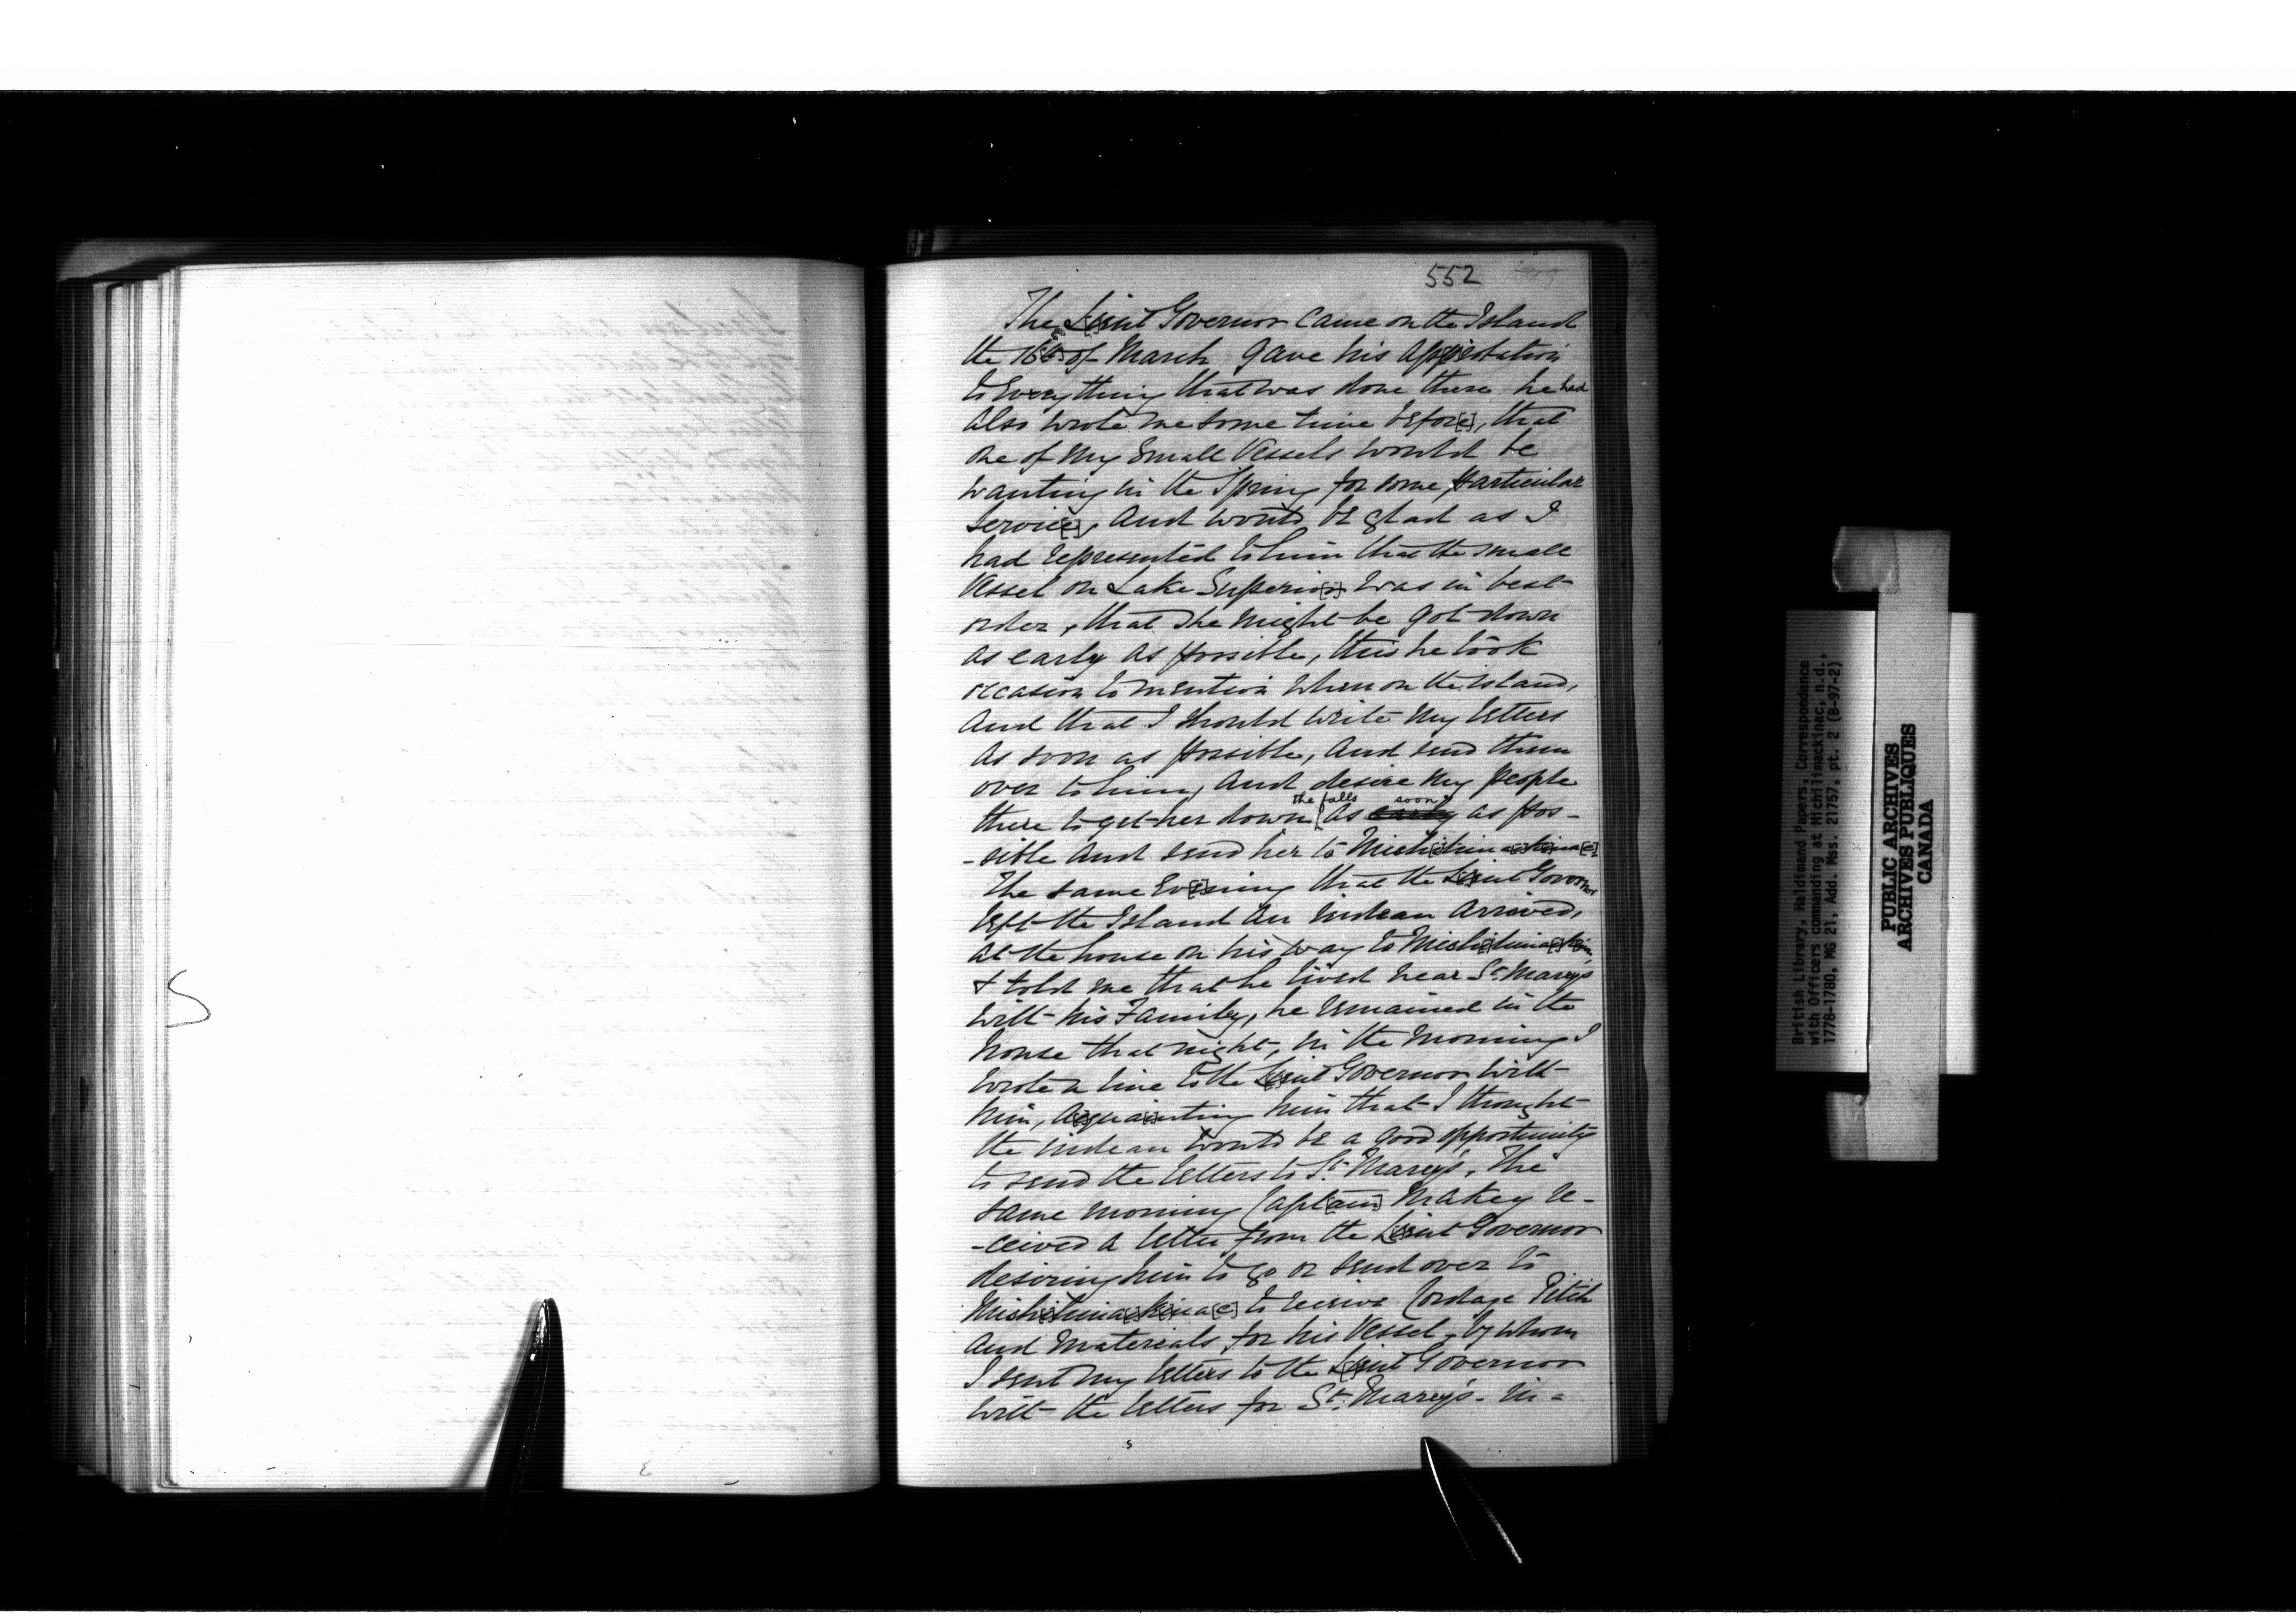 552
The Lieut Governor came on the Island
the 16th of March gave his Approbation
to Everything that was done there he had
also wrote me some time before, that
one of My Small Vessels would be
wanting in the Spring for some particular
Service, And would be glad as I
had represented to him that the small
Vessel on Lake Superior was in best
order, that she might be got down
as early as possible, this he took
occasion to mention when on the island,
And that I should write My letters
As soon as possible, And send them
over to him, And desire my people
there to get her down the falls As soon as pos-
-sible And send her to Michilimackinac
The same Evening that the Lieut Governor
left the Island An indean Arrived,
at the house on his way to
& told me that he lived near St Marey's
with his Family, he remained in the
house that night, in the Morning I
wrote a line to the Lieut Governor with
him, Acquainting him that I thought
the indean would be a good opportunity
to send the letters to St Marey's. The
same morning Capt[ain] Makey re-
-ceived a letter from the Lieut Governor
desiring him to go or send over to
Michilimackinac to receive Cordage Pitch
and Matereals for his Vessel, by whom
I sent my letters to the Lieut Governor
with the letters for St. Marey's. in=
British Library, Haldimand Papers, Correspondence
with Officers commanding at Michilimackinac, n.d.,
1778-1780, MG 21, Add. Mss. 21757, pt. 2 (B-97-2)
PUBLIC ARCHIVES
ARCHIVES PUBLIQUES
CANADA